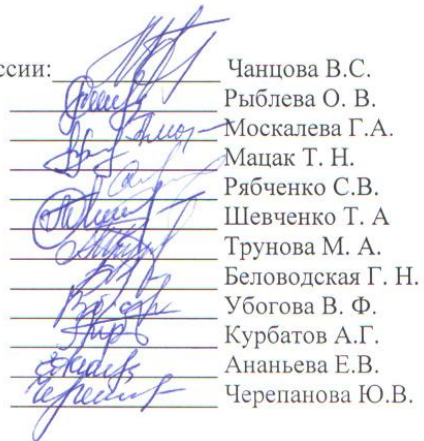 ссии: Чанцова В.С.
Рыблева О. В.
Москалева Г.А.
Мацак Т. Н.
Рябченко С.В.
Шевченко Т. А
Трунова М. А.
Беловодская Г. Н.
Убогова В. Ф.
Курбатов А.Г.
Ананьева Е.В.
Черепанова Ю.В.